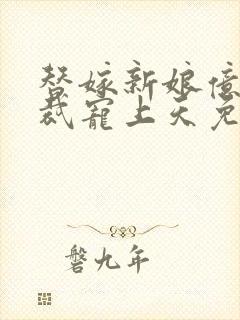 替嫁新娘億
裁寵上天免
磐九年